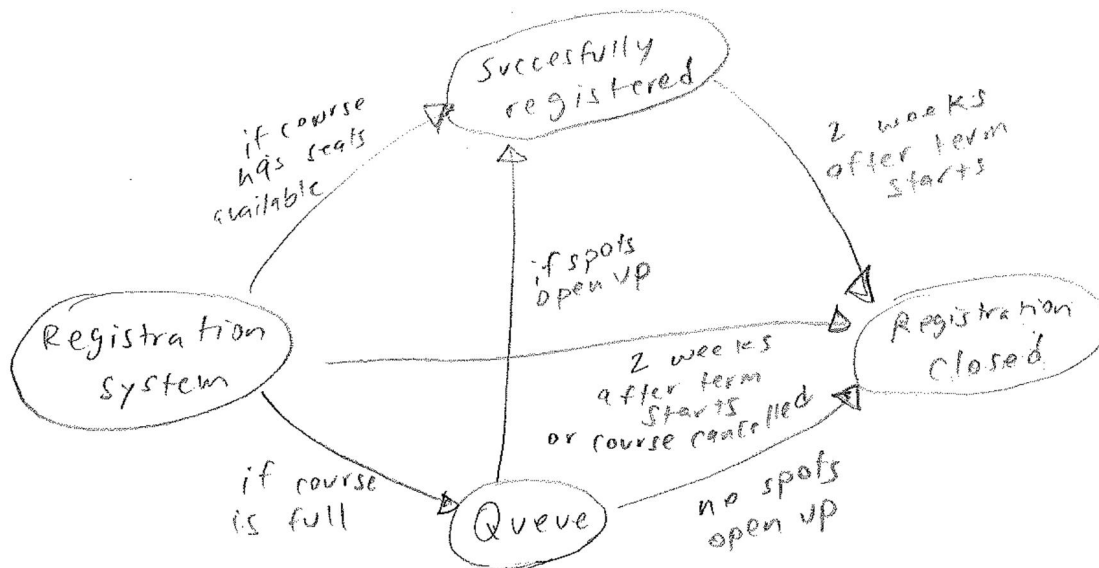 Succesfully
registered
if course
has seats
available
2 weeks
after term
starts
if spots
open up
Registration
system
Registration
Closed
2 weeks
after term
starts
or course cancelled
if course
is full
Queue
no spots
open up